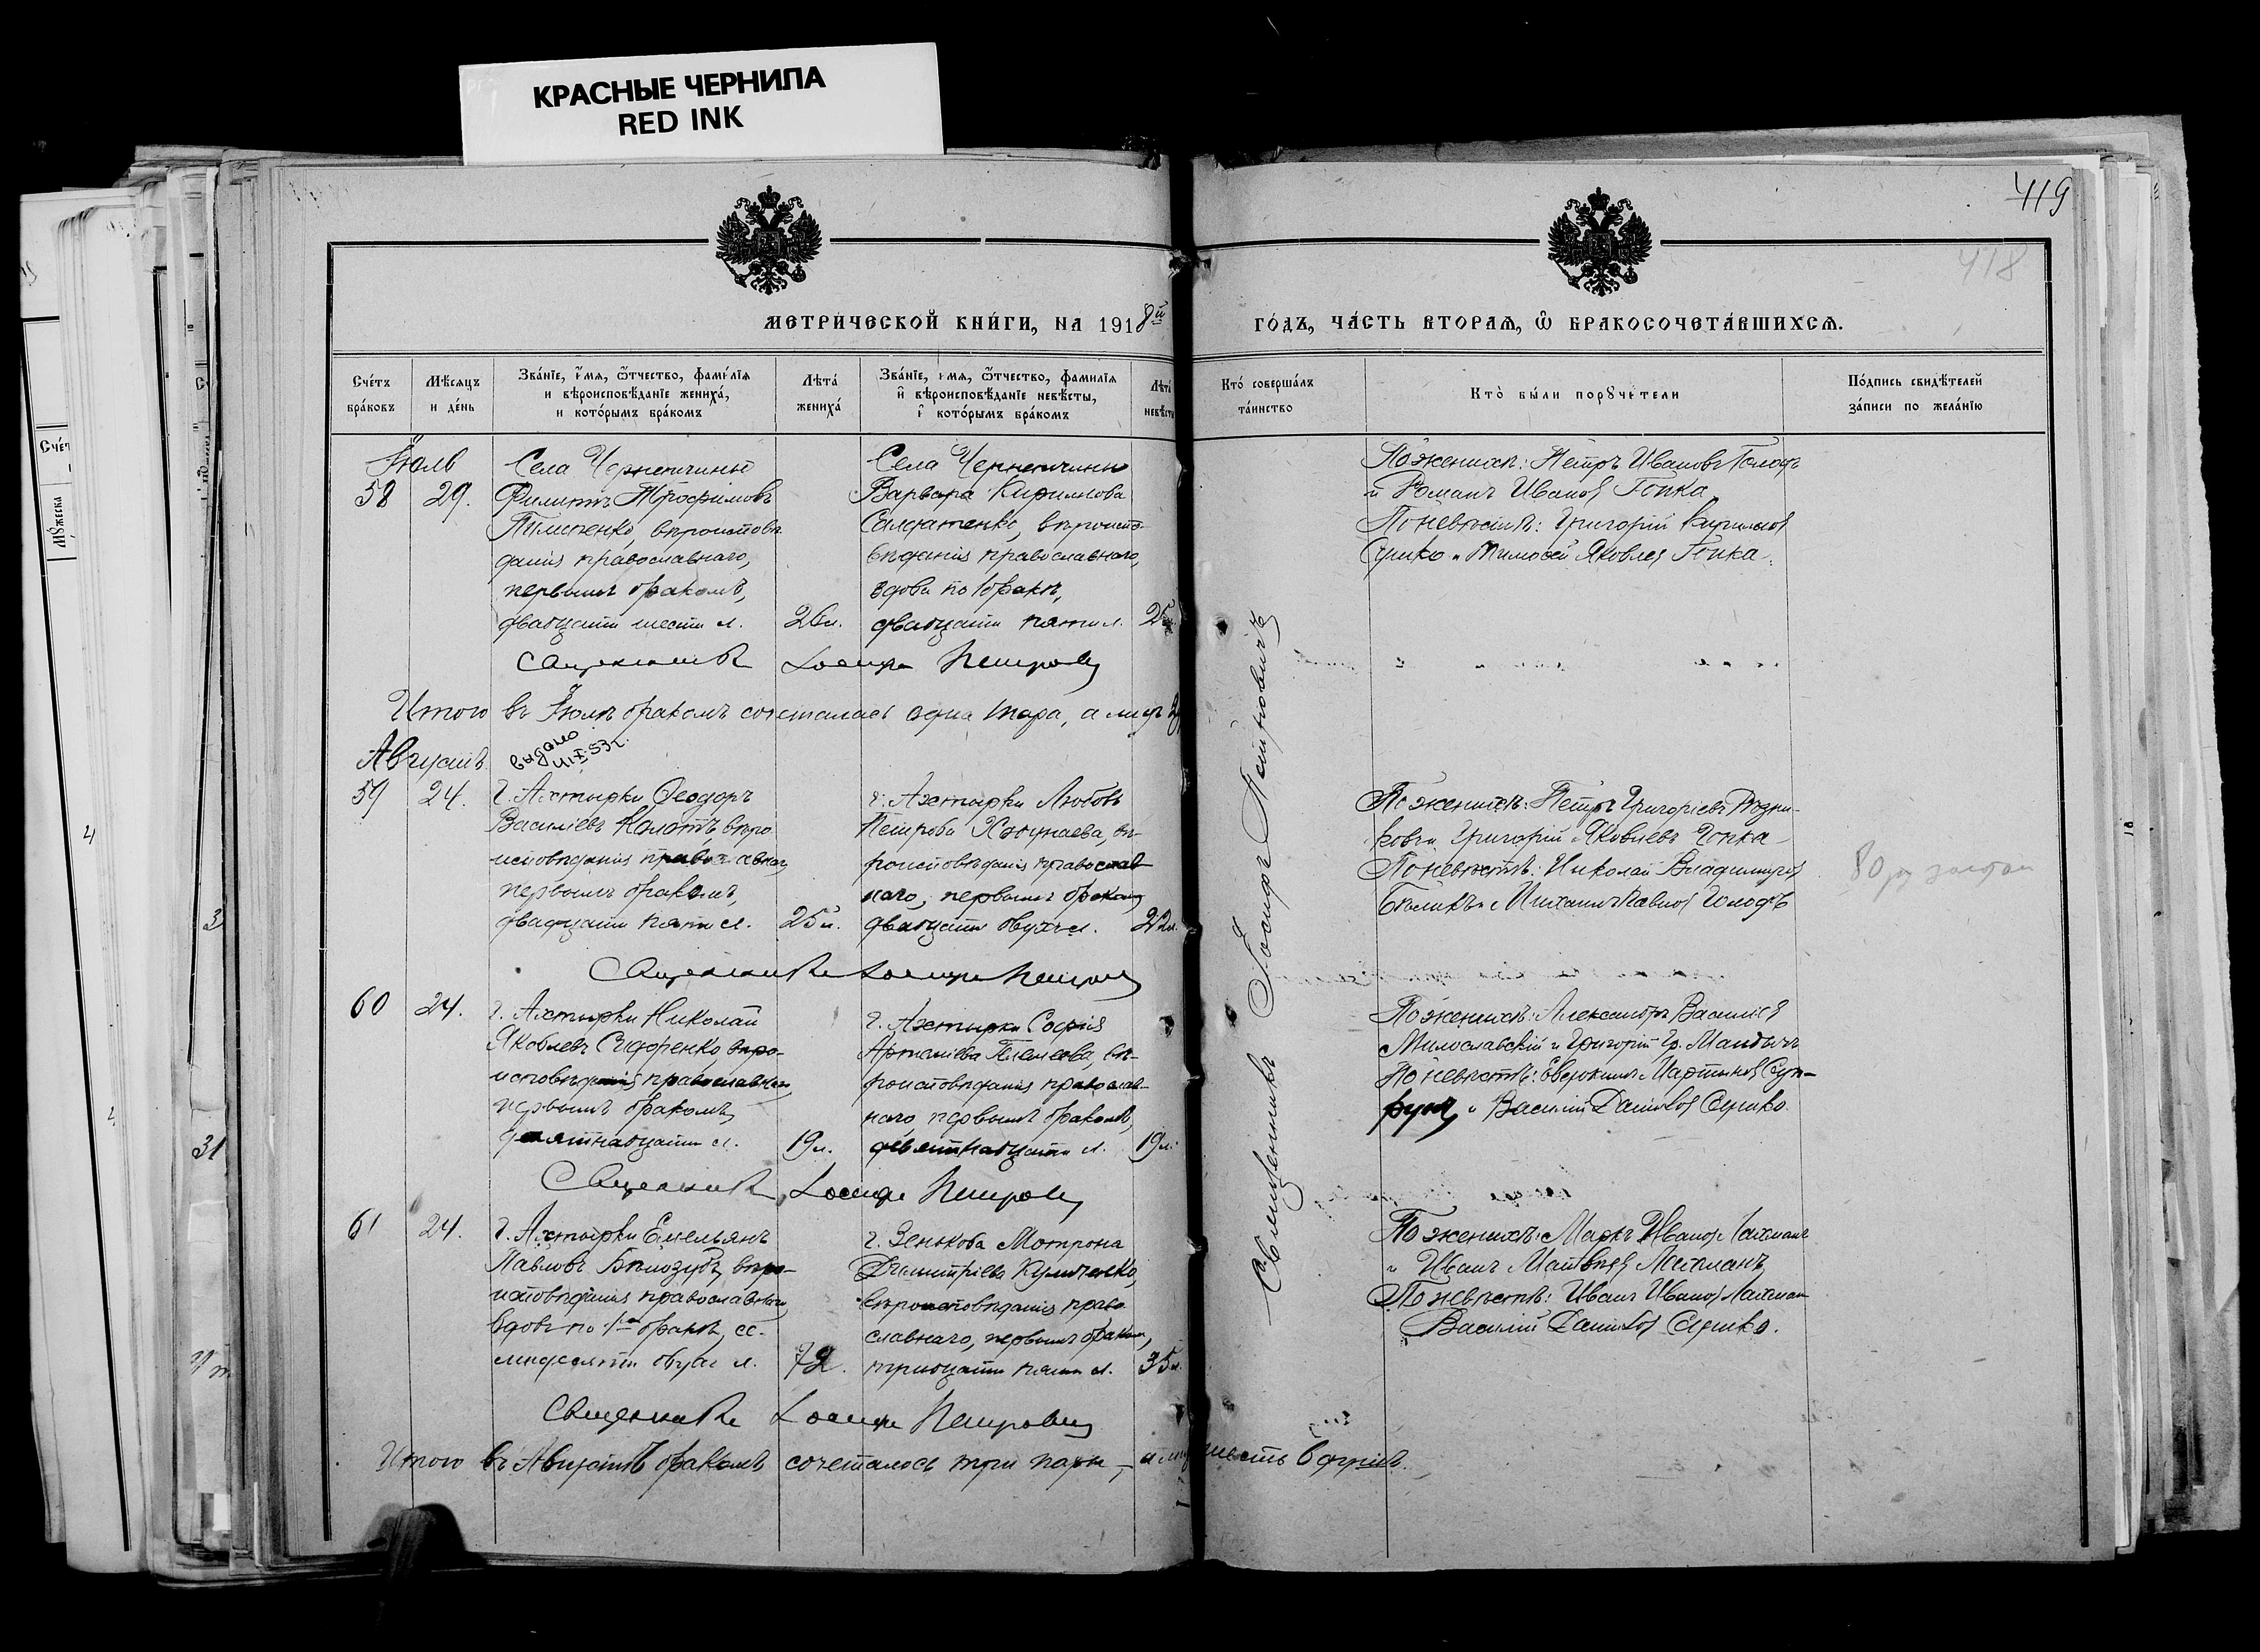 КРАСНЫЕ ЧЕРНИЛА
RED INK
419
418
МЕТРИ́ЧЕСКОЙ КНИ́ГИ, НА 1918й
ГО́ДЪ, ЧА́СТЬ ВТОРАЯ, Ѡ БРАКОСОЧЕТА́ВШИХСЯ.
Сче́тъ бра́ковъ
Мѣ́сяцъ и де́нь
Зва́нїе, и҆́мѧ, ѻ҆́тчество, фами́лїѧ и вѣроисповѣ́данїе жениха́, и кото́рымъ бра́комъ
Лѣта́ жениха́
Зва́нїе, и҆мѧ, ѻ҆́тчество, фамилїѧ и҆ вѣроисповѣ́данїе невѣ́сты, и҆ кото́рымъ бра́комъ
Лѣта́ невѣ́сты
Кто́ соверша́лъ та́инство
Кто̀ бы́ли порꙋчи́тели
По́дпись свидѣ́телей за́писи по жела́нїю
Іюль
58 29.
Села Чернетчины
Филиппъ Трофимовъ
Пилипенко, вѣроисповѣ-
данія православнаго,
первымъ бракомъ,
двадцати шести л.
26л.
Села Чернетчины
Варвара Кирилова
Салфатенко, вѣроиспо-
вѣданія православнаго,
вдова по 1 бракѣ,
двадцати пяти л.
25л.
По женихѣ: Петръ Ивановъ Голодъ
и Романъ Иванов Гопка
По невѣстѣ: Григорій Кирилов
Сушко и Тимофей Яковлев Гопка.
Священникъ Іосифъ Петровичъ
Итого въ Іюлѣ бракомъ сочеталась одна пара, а лицъ
Августъ
выдано
59 24.
г. Ахтырки Ѳеодоръ
Василіевъ Колотъ, вѣро
исповѣданія православнаго,
первымъ бракомъ,
двадцати пяти л.
25л.
г. Ахтырки Любовь
Петрова, вѣ-
роисповѣданія православ-
наго, первымъ бракомъ
двадцати двухъ л.
22л.
По женихѣ: Петръ Григоріевъ Рѣзни-
ковъ и Григорій Яковлевъ Гопка
По невѣстѣ: Николай Владиміров
Бѣликъ и Михаилъ Павлов Голодъ
Священникъ Іосифъ Петровичъ
60 24.
г. Ахтырки Николай
Яковлевъ Сидоренко вѣро-
исповѣданія православнаго,
первымъ бракомъ,
девятнадцати л.
19л.
г. Ахтырки Софія
Артеміева, вѣ-
роисповѣданія православ-
наго, первымъ бракомъ,
девятнадцати л.
19л.
По женихѣ: Александръ Василіев
Милославскій и Григорій Гр.
По невѣстѣ: Евдокимъ Мартынов Суп-
рунъ, и Василій Данилов Сушко.
Священникъ Іосифъ Петровичъ
61 24.
г. Ахтырки Емельянъ
Павловъ Бѣлозубъ, вѣро-
исповѣданія православнаго,
вдовъ по 1-мъ бракѣ, се-
мидесяти двухъ л.
72.
г. Зенькова Мотрона
Димитріева Куличенко,
вѣроисповѣданія право
славнаго, первымъ бракомъ,
тридцати пяти л.
35л.
По женихѣ: Маркъ Иванов Лахман
и Иванъ Матвѣев
По невѣстѣ: Иванъ Иванов Лахман
и Василій Данилов Сушко.
Священникъ Іосифъ Петровичъ
Итого въ Августѣ бракомъ сочеталось три пары, а лицъ шесть
Священникъ Іосифъ Петровичъ